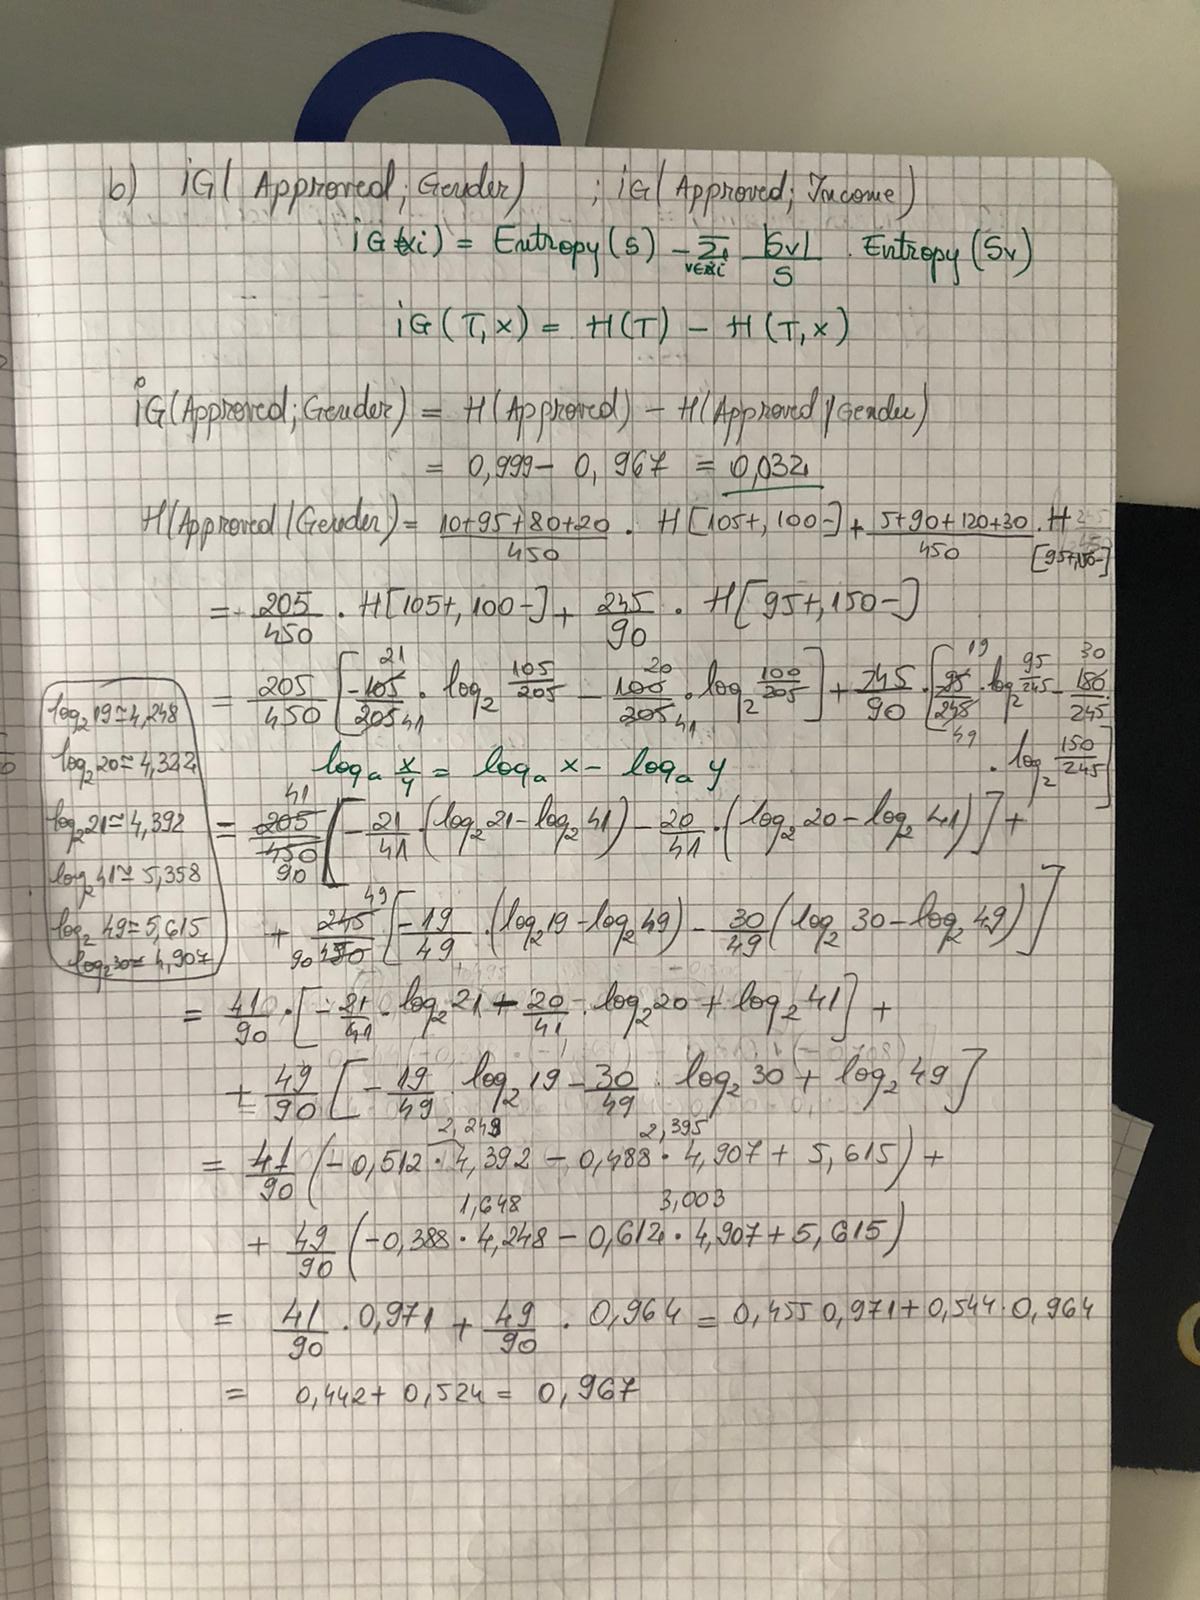 b) iG( Approved; Gender) ; iG( Approved; Income)
iG(xi) = Entropy(S) - Σ v∈xi |Sv|/S . Entropy(Sv)
iG(T,x) = H(T) - H(T,x)
iG(Approved; Gender) = H(Approved) - H(Approved/Gender)
= 0,999 - 0,967 = 0,032
H(Approved/Gender) = 10+95+80+20/450 . H[105+, 100-] + 5+90+120+30/450 . H
= 205/450 . H[105+, 100-] + 245/90 . H[95+, 150-]
= 205/450 [-105/205 . log₂ 105/205 - 100/205 . log₂ 100/205] + 245/90 . [95/245 . log₂ 95/245 - 150/245
21 41 20 41 19 49 30
. log₂ 150/245]
logₐ x/y = logₐ x - logₐ y
log₂ 19 ≃ 4,248
log₂ 20 ≃ 4,322
log₂ 21 ≃ 4,392
log₂ 41 ≃ 5,358
log₂ 49 = 5,615
log₂ 30 ≃ 4,907
= 41 205/450 90 [-21/41 . (log₂ 21 - log₂ 41) - 20/41 . (log₂ 20 - log₂ 41)] +
+ 49 245/450 90 [-19/49 . (log₂ 19 - log₂ 49) - 30/49 (log₂ 30 - log₂ 49)]
= 41/90 . [-21/41 . log₂ 21 - 20/41 . log₂ 20 + log₂ 41] +
+ 49/90 [-19/49 log₂ 19 - 30/49 . log₂ 30 + log₂ 49]
2,249 2,395
= 41/90 (-0,512 . 4,392 - 0,488 . 4,907 + 5,615) +
1,648 3,003
+ 49/90 (-0,388 . 4,248 - 0,612 . 4,907 + 5,615)
= 41/90 . 0,971 + 49/90 . 0,964 = 0,455 0,971 + 0,544 . 0,964
= 0,442 + 0,524 = 0,967